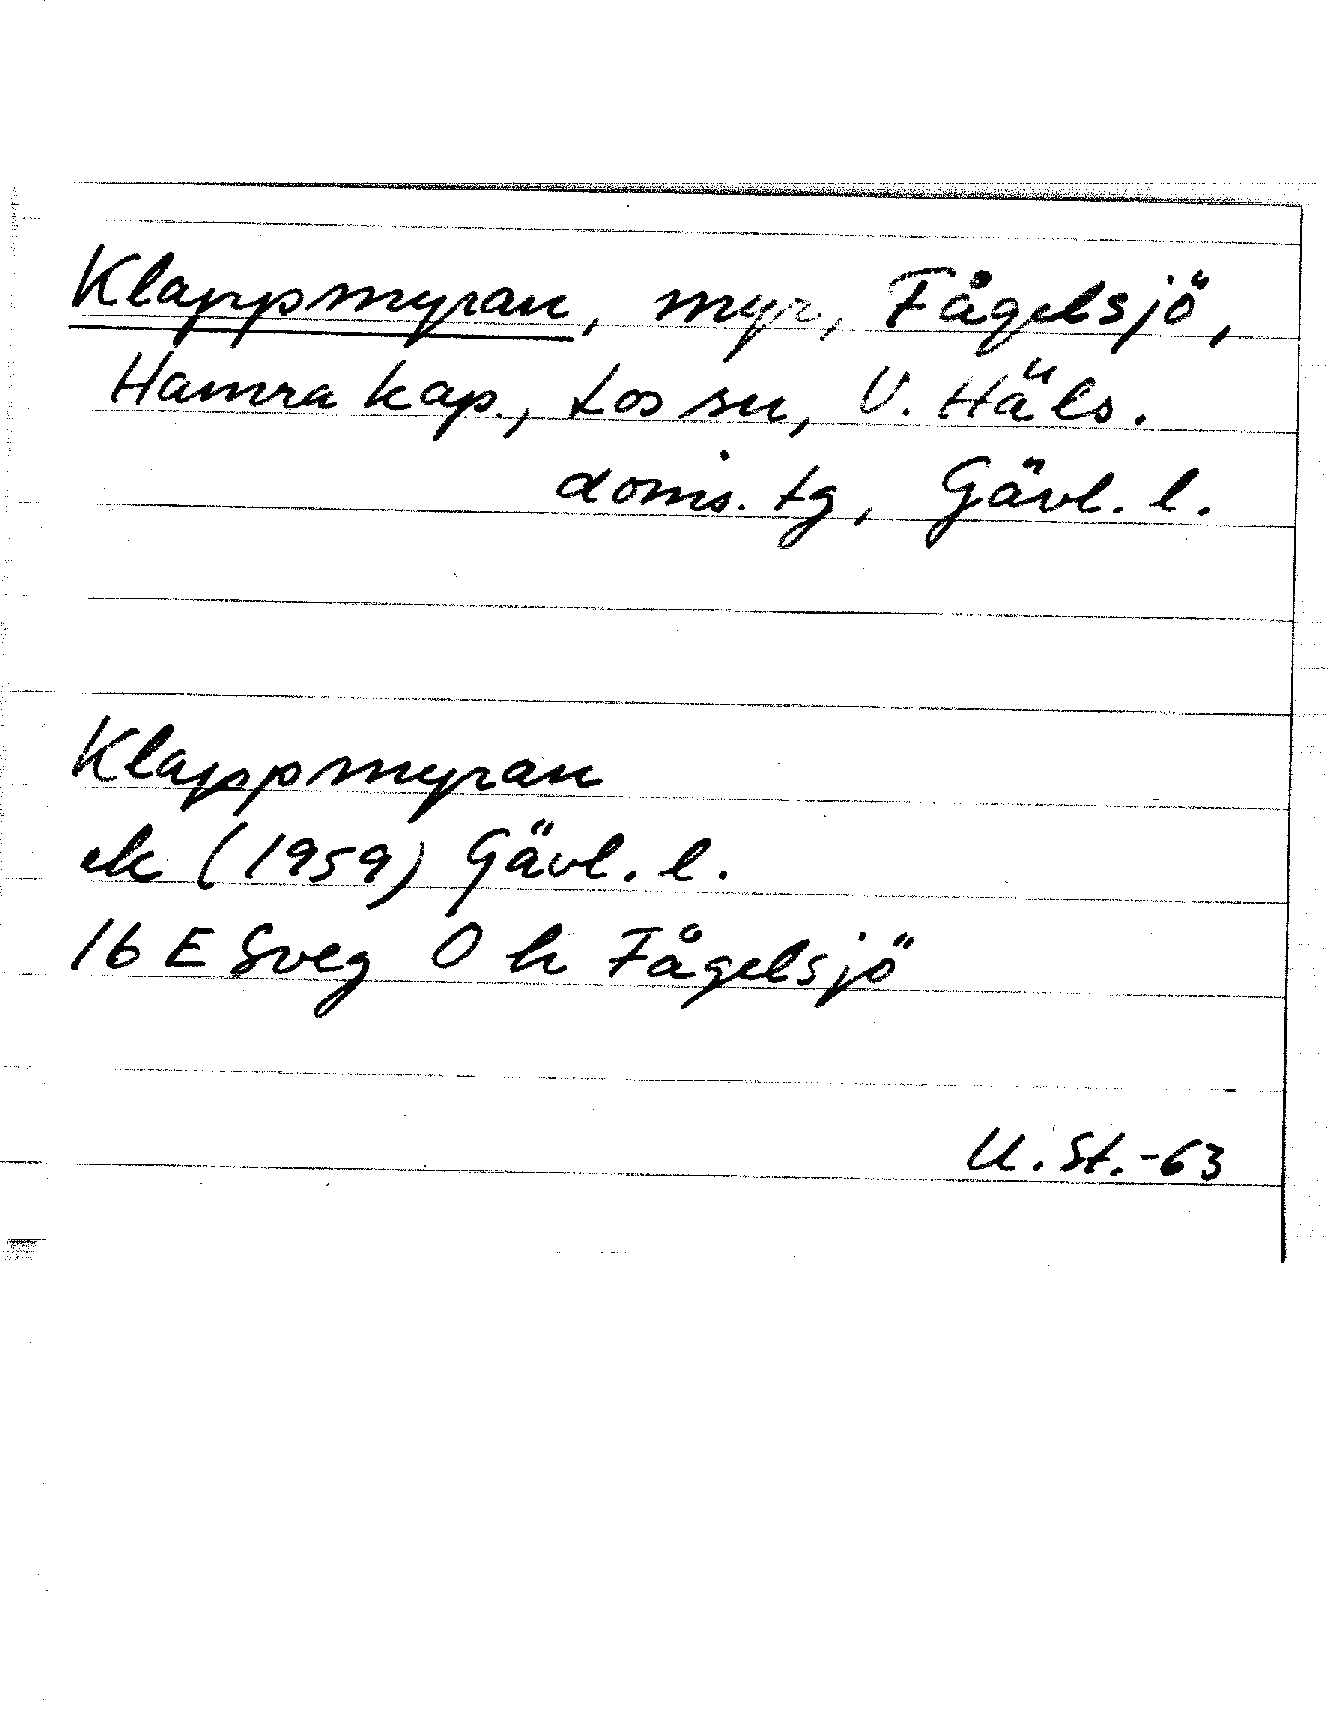 Klappmyran, myr, Fågelsjö,
Hamra kap., Los sn, V. Häls.
doms. tg, Gävl. l.
Klappmyran
ek (1959) Gävl. l.
16 E Sveg O h Fågelsjö
U. St.-63